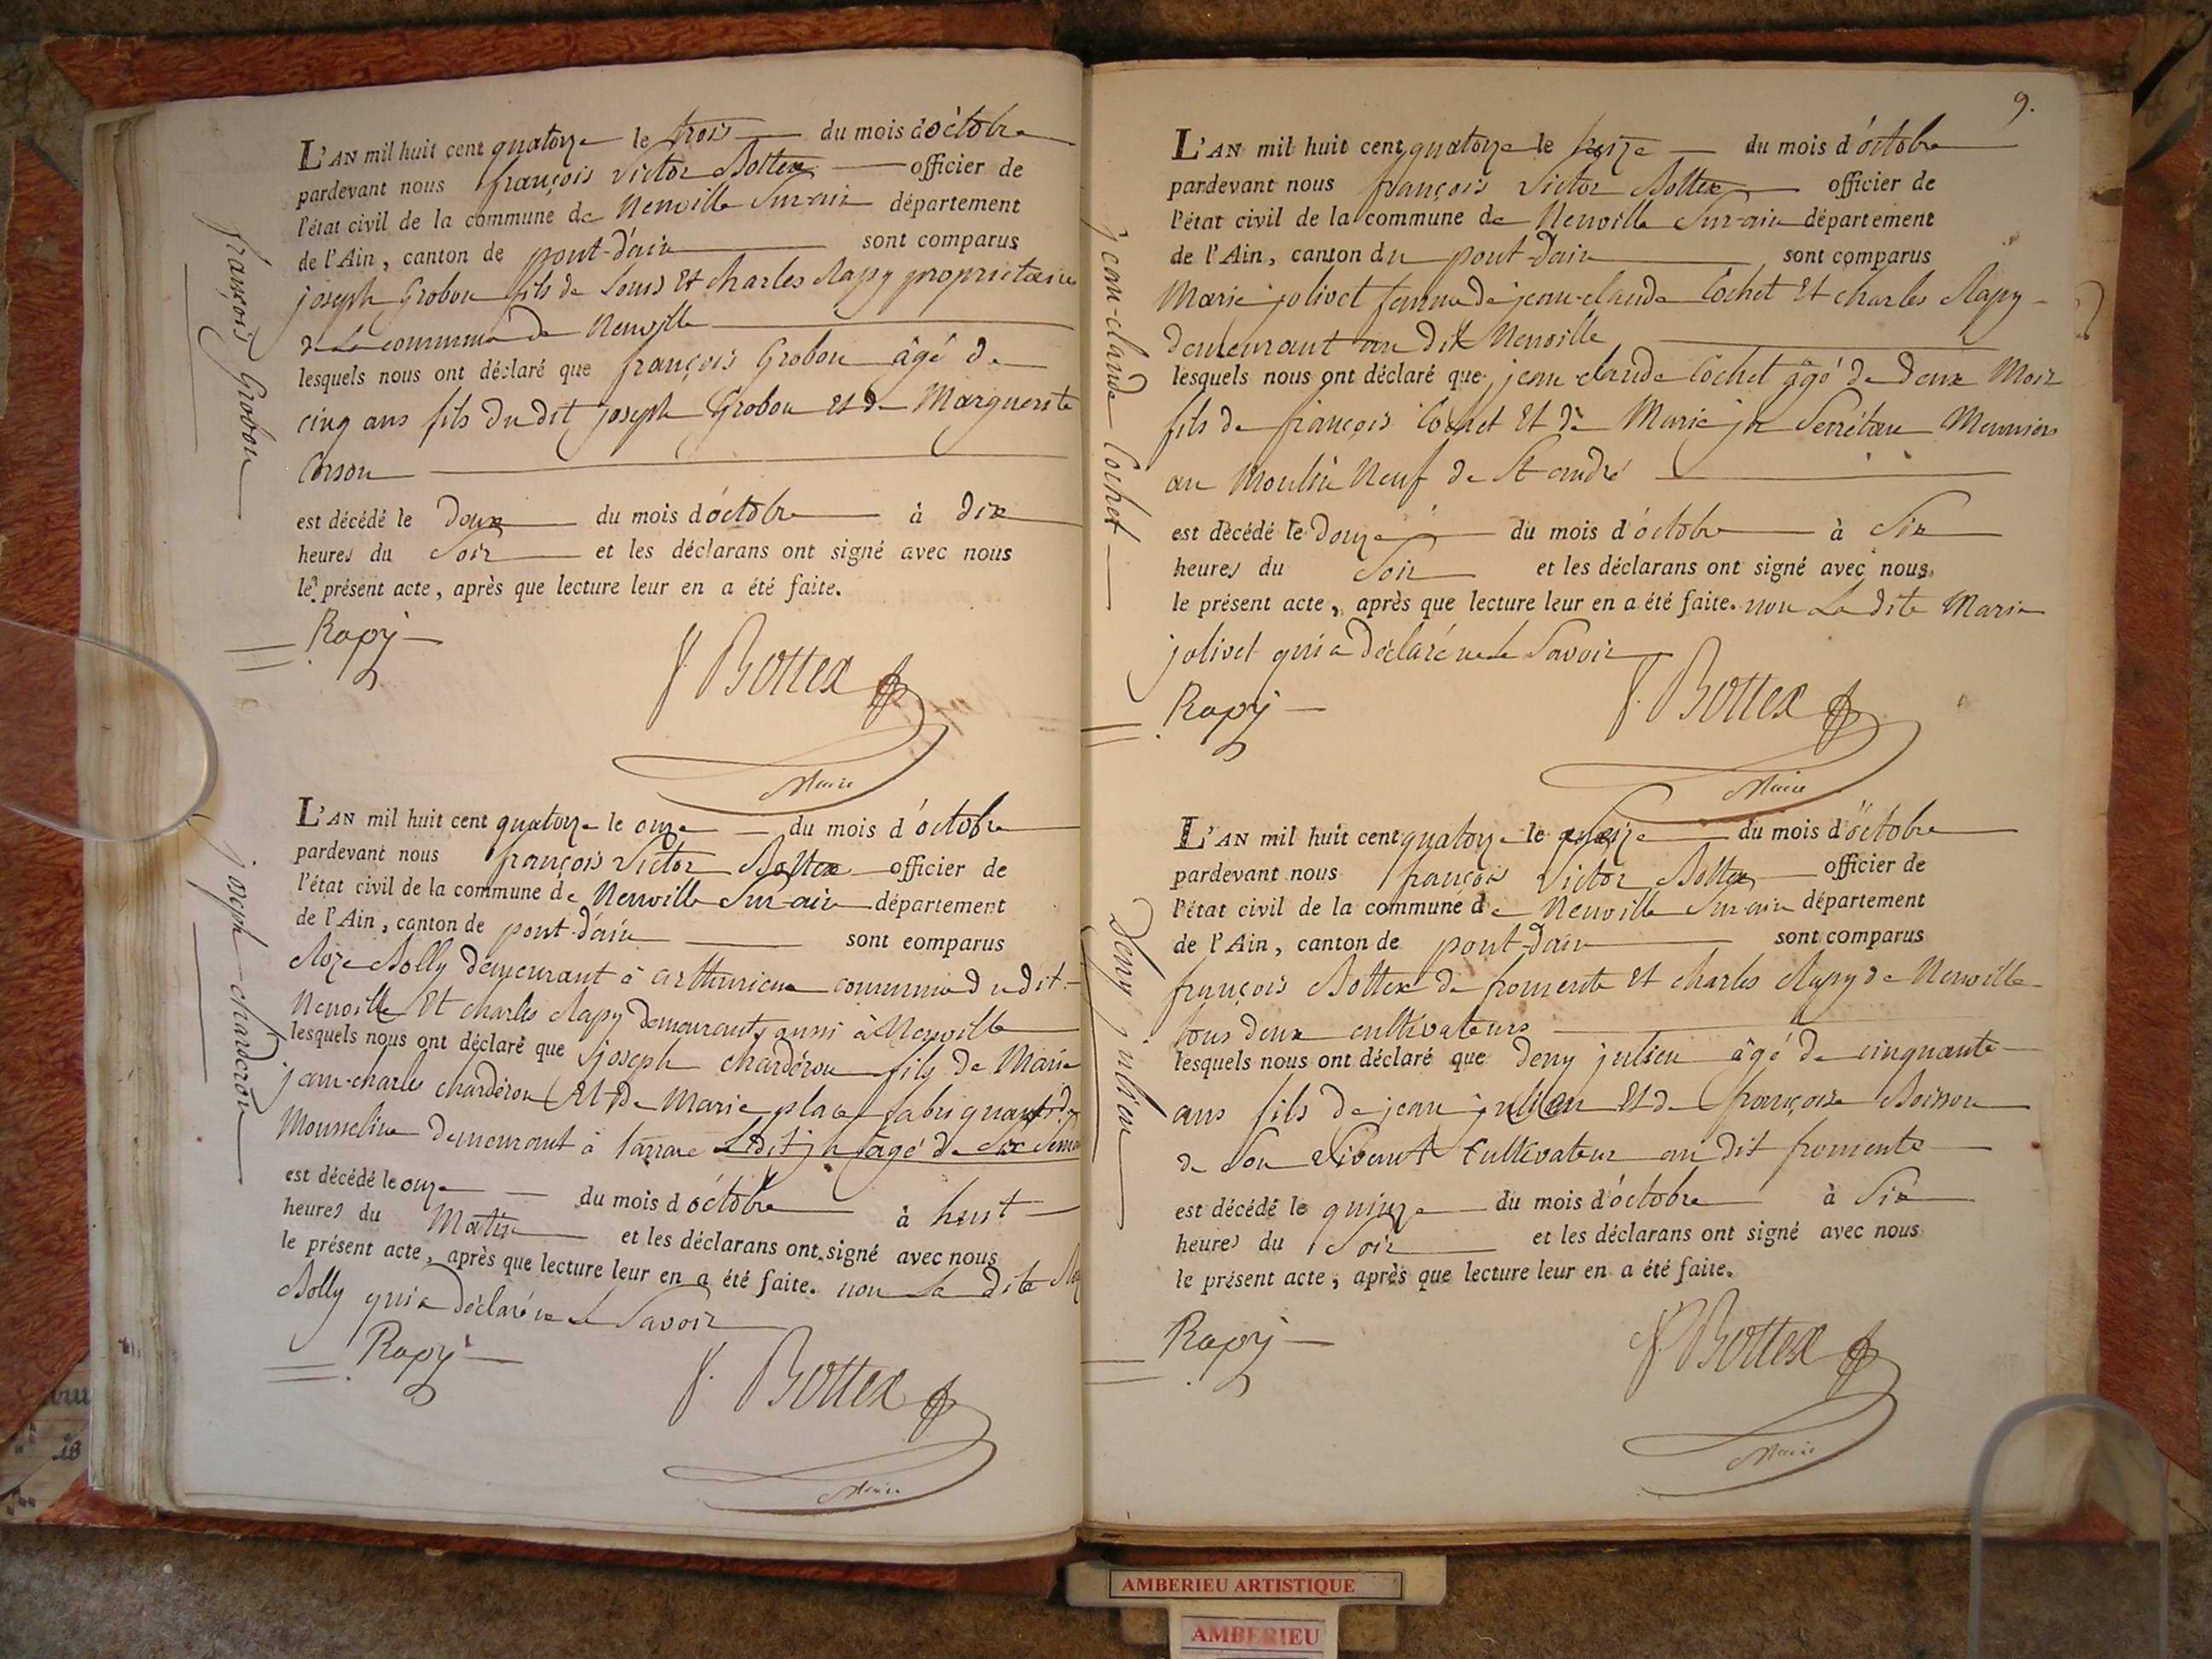 L'AN mil huit cent quatorze le trois du mois d'octobre
pardevant nous françois victor Bottex officier de
l'état civil de la commune de Neuville Sur-ain département
de l'Ain, canton de pont-d'ain sont comparus
joseph Grobon fils de Louis Et charles Rapy proprietaire
de La commune de Neuville
lesquels nous ont déclaré que françois Grobon âgé de
cinq ans fils du dit joseph Grobon et de Marguerite
Corson
est décédé le deux du mois d'octobre à dix
heures du Soir et les déclarans ont signé avec nous
le présent acte, après que lecture leur en a été faite.
Rapy
f. Bottex
Maire
françois Grobon
L'AN mil huit cent quatorze le onze du mois d'octobre
pardevant nous françois Victor Bottex officier de
l'état civil de la commune de Neuville Sur-ain département
de l'Ain, canton de pont-d'ain sont comparus
Roze Bolly demeurant à arthurieue commune du dit
Neuville Et charles Rapy demeurants aussi à Neuville
lesquels nous ont déclaré que joseph charderon fils de Marie
jean-charles charderon Et De Marie place fabriquants de
Mousseline demeurant à tarrare Ledit jh âgé de Six Sem
est décédé le onze du mois d'octobre à huit
heures du Matin et les déclarans ont signé avec nous
le présent acte, après que lecture leur en a été faite. non La dite
Bolly qui a déclaré ne le Savoir
Rapy
f. Bottex
Maire
joseph charderon
9.
L'AN mil huit cent quatorze le treize du mois d'octobre
pardevant nous françois Victor Bottex officier de
l'état civil de la commune de Neuville Sur-ain département
de l'Ain, canton du pont-d'ain sont comparus
Marie jolivet femme de jean-claude Cochet Et charles Rapy
demeurant au dit Neuville
lesquels nous ont déclaré que jean claude Cochet âgé de deux Moix
fils de françois Cochet Et de Marie jh Secrétan Meuniers
au Moulin Neuf de St andré
est décédé le Douze du mois d'octobre à Six
heures du Soir et les déclarans ont signé avec nous
le présent acte, après que lecture leur en a été faite. non La dite Marie
jolivet qui a Déclaré ne le Savoir
Rapy
f. Bottex
Maire
jean-claude Cochet
L'AN mil huit cent quatorze le seize du mois d'octobre
pardevant nous françois Victor Bottex officier de
l'état civil de la commune de Neuville Sur-ain département
de l'Ain, canton de pont-Dain sont comparus
françois Bottex de fromente Et charles Rapy de Neuville
tous deux cultivateurs
lesquels nous ont déclaré que deny julien âgé de cinquante
ans fils de jean julien Et de françoise Boisson
de Son Vivant Cultivateur au dit fromente
est décédé le quinze du mois d'octobre à Six
heures du Soir et les déclarans ont signé avec nous
le présent acte, après que lecture leur en a été faite.
Rapy
f. Bottex
Maire
Deny julien
AMBERIEU ARTISTIQUE
AMBERIEU